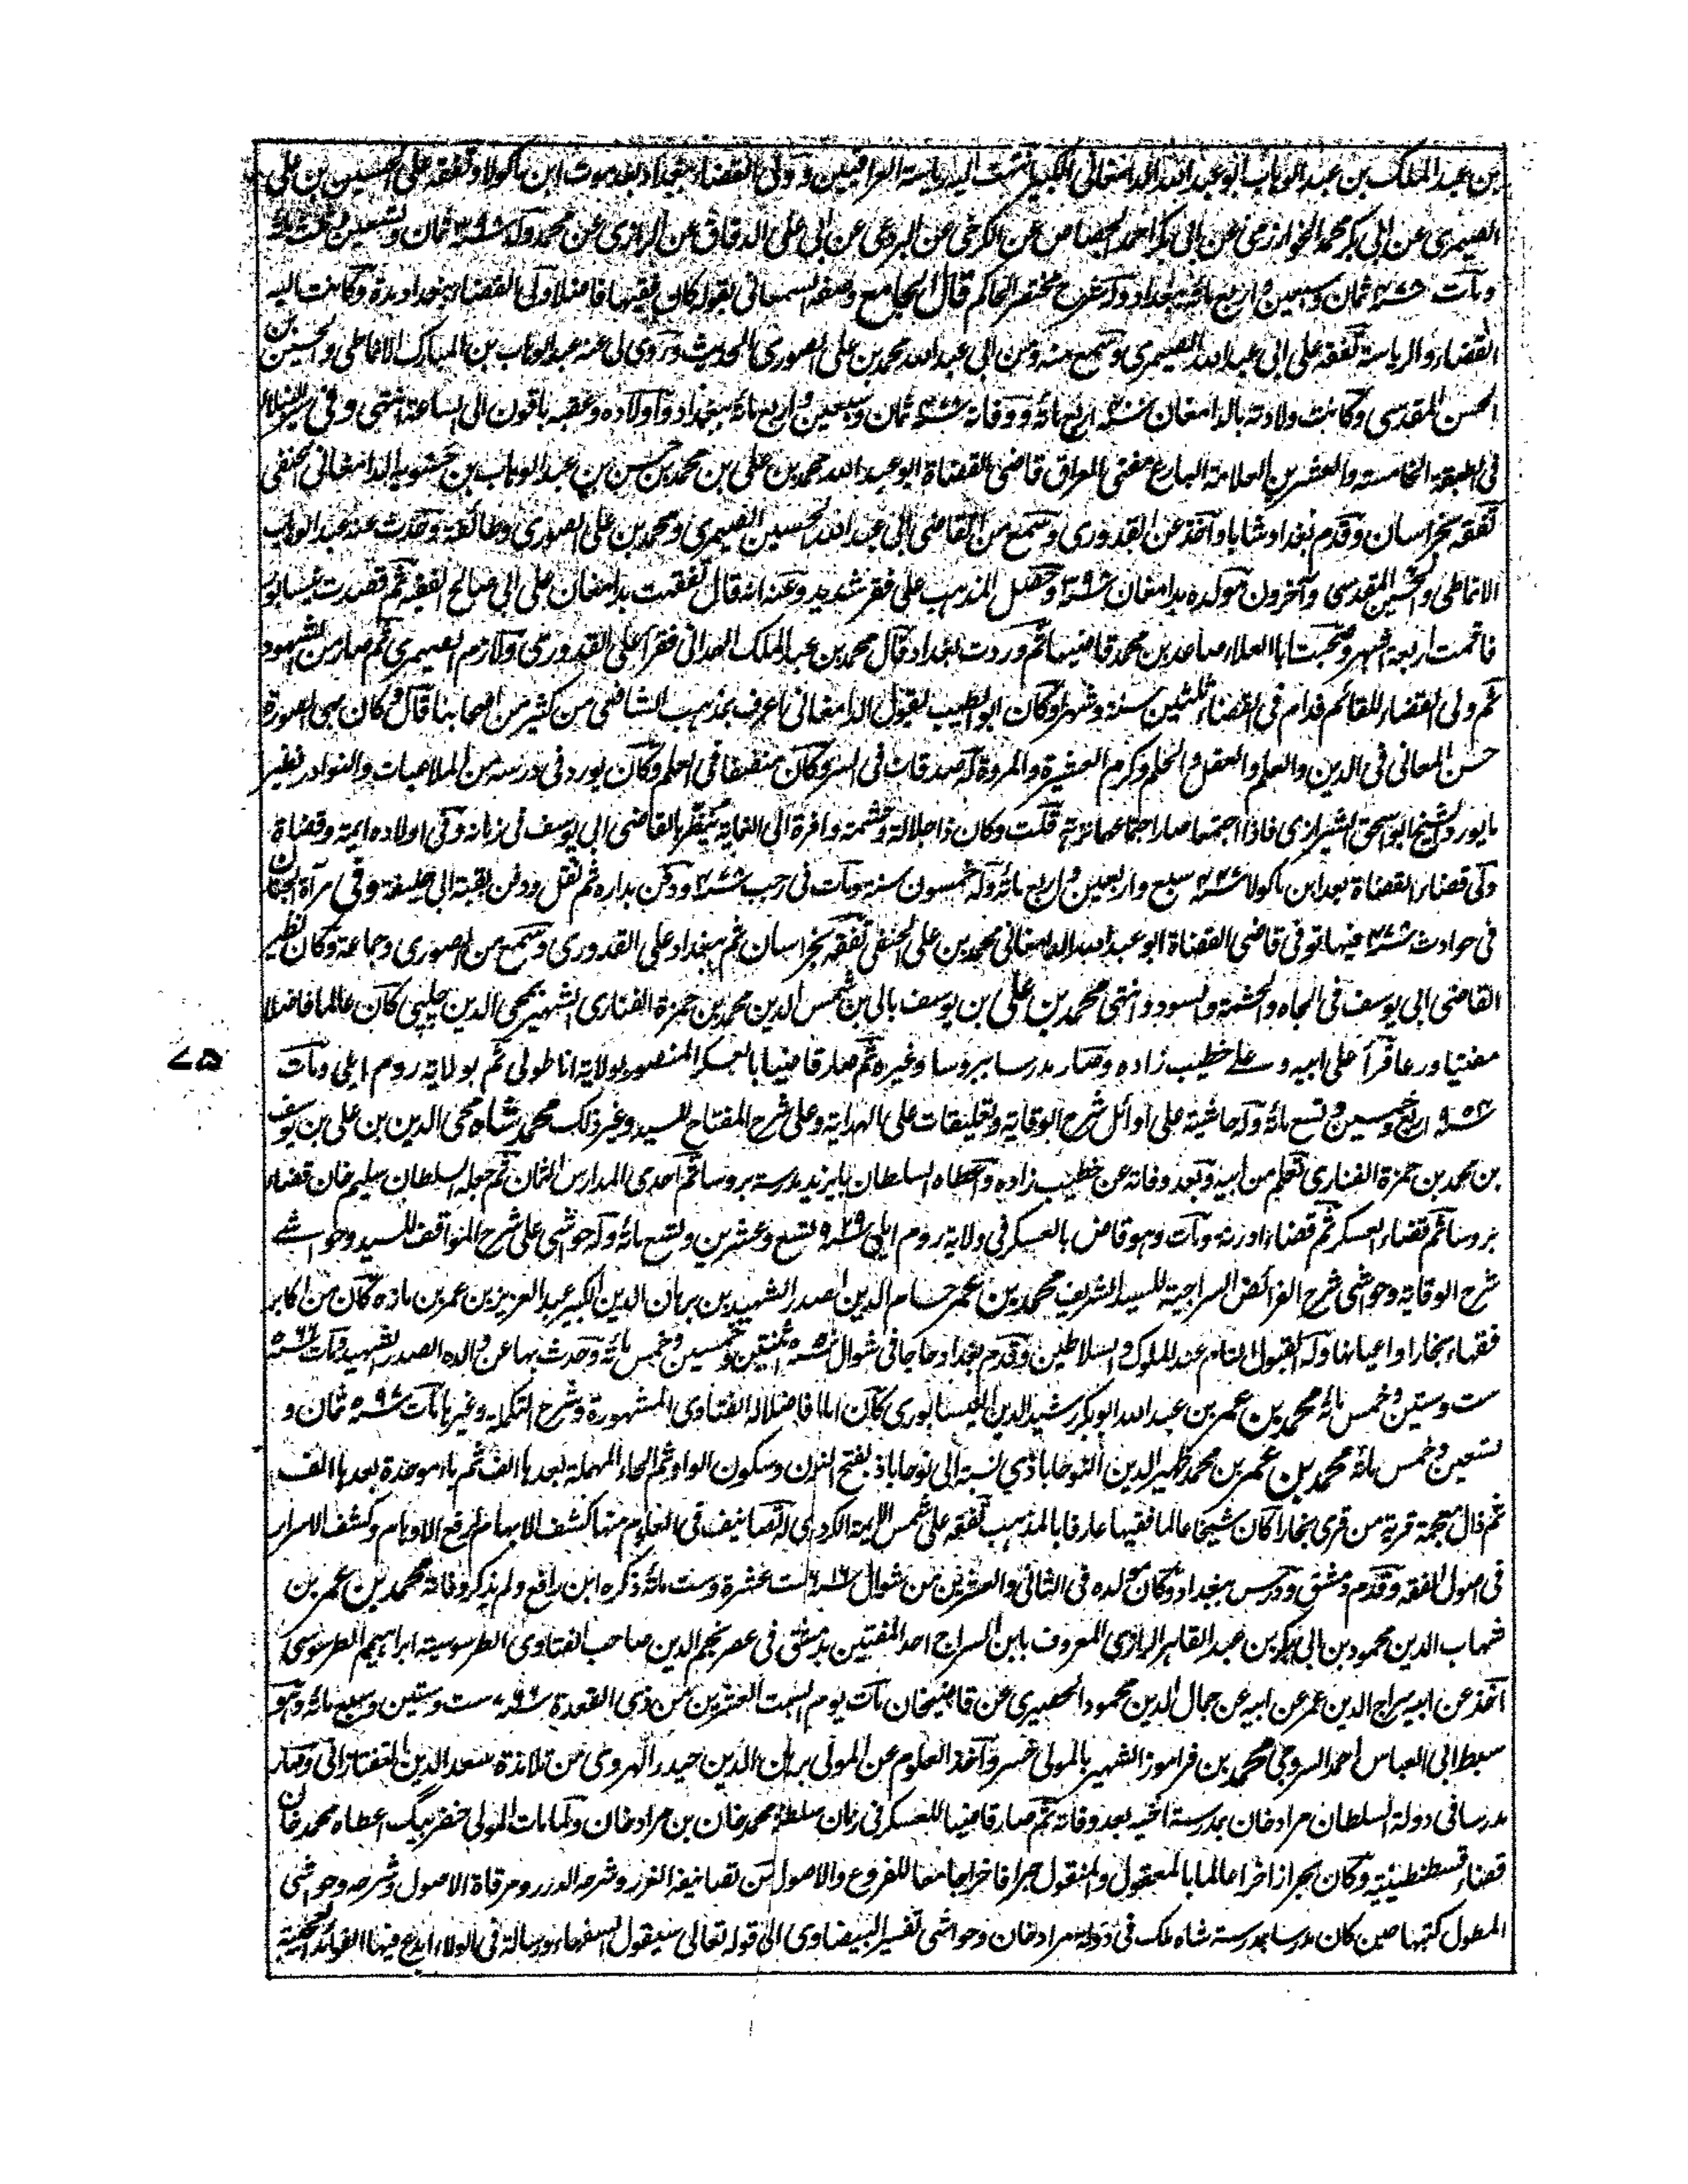 بن عبد الملك بن عبد الوهاب ابو عبد الله الدامغانى الكبير انتهت اليه رياسة العراقيين وولى القضاء ببغداد بعد موت ابن ماكولا وتفقه على الحسين بن على
الصيمرى عن ابى بكر محمد الخوارزمى عن ابى بكر احمد الجصاص عن الكرخى عن البردعى عن ابى على الدقاق عن الرازى عن محمد ولد سنة ٣٩٨ ثمان وتسعين وثلث مائة
ومات سنة ٤٧٨ ثمان وسبعين واربع مائة ببغداد وله شرح مختصر الحاكم قال الجامع وصفه السمعانى بقوله كان فقيها فاضلا ولى القضاء ببغداد مدة وكانت اليه
القضاء والرياسة تفقه على ابى عبد الله الصيمرى وسمع منه ومن ابى عبد الله محمد بن على الصورى الحديث وروى لى عنه عبد الوهاب بن المبارك الانماطى والحسين بن
الحسن المقدسى وكانت ولادته بالدامغان سنة ٤٠٠ اربع مائة ووفاته سنة ٤٧٨ ثمان وسبعين واربع مائة ببغداد واولاده وعقبه باقون الى الساعة انتهى وفى سير النبلاء
فى الطبقة الخامسة والعشرين العلامة البارع مفتى العراق قاضى القضاة ابو عبد الله محمد بن على بن محمد بن حسن بن عبد الوهاب بن حسنويه الدامغانى الحنفى
تفقه بخراسان وقدم بغداد شابا واخذ عن القدورى وسمع من القاضى ابى عبد الله الحسين الصيمرى ومحمد بن على الصورى وطائفة وحدث عنه عبد الوهاب
الانماطى والحسين المقدسى وآخرون مولده بدامغان سنة ٣٩٨ وحصل المذهب على فقر شديد وعنه انه قال تفقهت بدامغان على ابى صالح الفقيه ثم قصدت نيسابور
فاقمت اربعة اشهر وصحبت ابا العلاء صاعد بن محمد قاضيها ثم وردت بغداد قال محمد بن عبد الملك الهمدانى فقرأ على القدورى ولازم الصيمرى ثم صار من الشهود
ثم ولى القضاء للقائم فدام فى القضاء ثلثين سنة وشهرا وكان ابو الطيب يقول الدامغانى اعرف بمذهب الشافعى من كثير من اصحابنا قال وكان بهى الصورة
حسن المعانى فى الدين والعلم والعقل والحلم وكرم العشيرة والمروة له صدقات فى السر وكان منصفا فى العلم وكان يورد فى درسه من الملاعبات والنوادر نظير
ما يورد الشيخ ابو اسحق الشيرازى فاذا اجتمعا صار اجتماعهما نزهة قلت وكان ذا جلالة وحشمة وافرة الى الغاية ينظر بالقاضى ابى يوسف فى زمانه وفى اولاده ايمة وقضاة
ولى قضاء القضاة بعد ابن ماكولا سنة ٤٤٧ سبع واربعين واربع مائة وله خمسون سنة ومات فى رجب سنة ٤٧٨ ودفن بداره ثم نقل ودفن بقبة ابى حنيفة وفى مرآة الجنان
فى حوادث سنة ٤٧٨ فيها توفى قاضى القضاة ابو عبد الله الدامغانى محمد بن على الحنفى تفقه بخراسان ثم ببغداد على القدورى وسمع من الصورى وجماعة وكان نظير
القاضى ابى يوسف فى الجاه والحشمة والسودد انتهى محمد بن على بن يوسف بالى بن شمس الدين محمد بن حمزة الفنارى الشهير بمحى الدين چلپى كان عالما فاضلا
مفتيا ورعا قرأ على ابيه وعلى خطيب زاده وصار مدرسا ببروسا وغيره ثم صار قاضيا بالعسكر المنصور بولاية اناطولى ثم بولاية روم ايلى ومات
سنة ٩٥٤ اربع وخمسين وتسع مائة وله حاشية على اوائل شرح الوقاية وتعليقات على الهداية وعلى شرح المفتاح للسيد وغير ذلك محمد شاه محى الدين بن على بن يوسف
بن محمد بن حمزة الفنارى تعلم من ابيه وبعد وفاته عن خطيب زاده واعطاه السلطان بايزيد مدرسة بروسا ثم احدى المدارس الثمان ثم جعله السلطان سليم خان قضاء
بروسا ثم قضاء العسكر ثم قضاء ادرنه ومات وهو قاض بالعسكر فى ولاية روم ايلى سنة ٩٢٩ تسع وعشرين وتسع مائة وله حواشى على شرح المواقف للسيد وحواشے
شرح الوقاية وحواشى شرح الفرائض السراجية للسيد الشريف محمد بن عمر حسام الدين الصدر الشهيد بن برهان الدين الكبير عبد العزيز بن عمر بن مازه كان من اكابر
فقهاء بخارا واعيانها وله القبول التام عند الملوك والسلاطين وقدم بغداد حاجا فى شوال سنة ٥٥٢ ثنتين وخمسين وخمس مائة وحدث بها عن والده الصدر الشهيد ومات سنة ٥٦٦
ست وستين وخمس مائة محمد بن عمر بن عبد الله ابو بكر رشيد الدين النيسابورى كان اماما فاضلا له الفتاوى المشهورة وشرح التكملة وغيرها مات سنة ٥٩٨ ثمان و
تسعين وخمس مائة محمد بن عمر بن محمد ظهير الدين النوحاباذى نسبة الى نوحاباذ بفتح النون وسكون الواو ثم الحاء المهملة بعدها الف ثم باء موحدة بعدها الف
ثم ذال معجمة قرية من قرى بخارا كان شيخا عالما فقيها عارفا بالمذهب تفقه على شمس الايمة الكردرى له تصانيف فى العلوم منها كشف الابهام لرفع الاوهام وكشف الاسرار
فى اصول الفقه وقدم دمشق ودرس ببغداد وكان مولده فى الثانى والعشرين من شوال سنة ٦١٦ ست عشرة وست مائة ذكره ابن رافع ولم يذكر وفاته محمد بن عمر بن
شهاب الدين محمود بن ابى بكر بن عبد القاهر الرازى المعروف بابن السراج احد المفتيين بدمشق فى عصر نجم الدين صاحب الفتاوى الطرسوسية ابراهيم الطرسوسى
اخذ عن ابيه سراج الدين عمر عن ابيه عن جمال الدين محمود الحصيرى عن قاضيخان مات يوم السبت العشرين من ذى القعدة سنة ٧٦٦ ست وستين وسبع مائة وهو
سبط ابى العباس احمد السروجى محمد بن فراموز الشهير بالمولى خسرو اخذ العلوم عن المولى برهان الدين حيدر الهروى من تلامذة سعد الدين التفتازانى وصار
مدرسا فى دولة السلطان مراد خان بمدرسة اخيه بعد وفاته ثم صار قاضيا للعسكر فى زمان سلطنة محمد خان بن مراد خان ولما مات المولى خضر بيگ اعطاه محمد خان
قضاء قسطنطينية وكان بحرا زاخرا عالما بالمعقول والمنقول حبرا فاخرا جامعا للفروع والاصول من تصانيفه الغرر وشرحه الدرر ومرقاة الاصول وشرحه وحواشى
المطول كتبها حين كان مدرسا بمدرسة شاه ملك فى دولة مراد خان وحواشى تفسير البيضاوى الى قوله تعالى سيقول السفهاء ورسالة فى الولاء ابدع فيها الفوائد العجيبة
٧٥